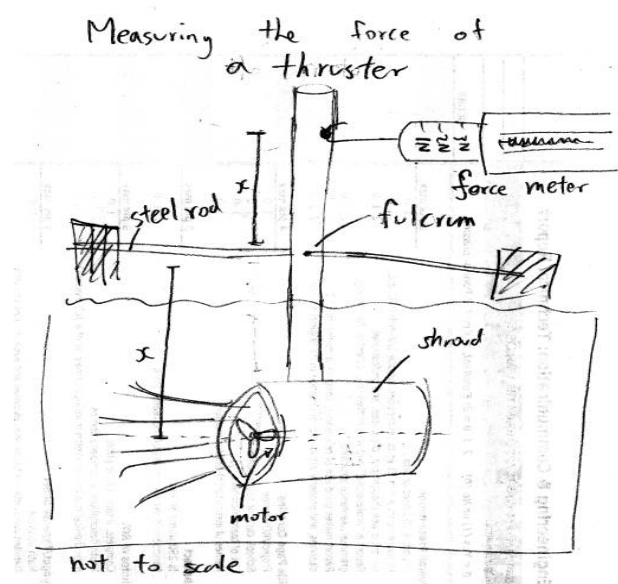 Measuring the force of
a thruster
x
1N 2N 3N
force meter
steel rod
fulcrum
x
shroud
motor
not to scale